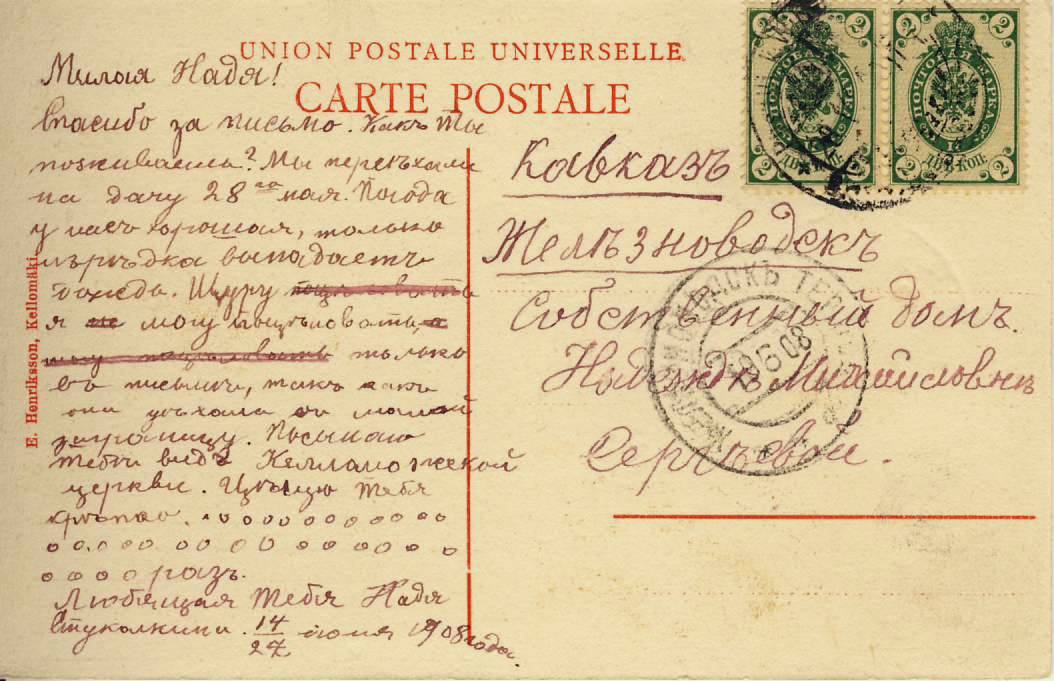 UNION POSTALE UNIVERSELLE
CARTE POSTALE
Милая Надя!
Спасибо за письмо. Какъ ты
поживаешь? Мы переѣхали
на дачу 28го мая. Погода
у насъ хорошая, только
изрѣдка выпадаетъ
дождь. Шуру
я не могу поцѣловать
только
въ письмѣ, такъ какъ
она уѣхала съ мамой
заграницу. Посылаю
тебѣ видъ Келломожской
церкви. Цѣлую тебя
крѣпко. 1000000000000
00000000000000
0000 разъ.
Любящая тебя Надя
Стуколкина. 14/27 іюня 1908 года.
E. Henriksson, Kellomäki.
Кавказъ
Желѣзноводскъ
Собственный домъ.
Надеждѣ Михайловнѣ
Сергѣевой.
2 ПОЧТОВАЯ МАРКА 2
2 ДВѢ КОП. 2
2 ПОЧТОВАЯ МАРКА 2
2 ДВѢ КОП. 2
19 6 08